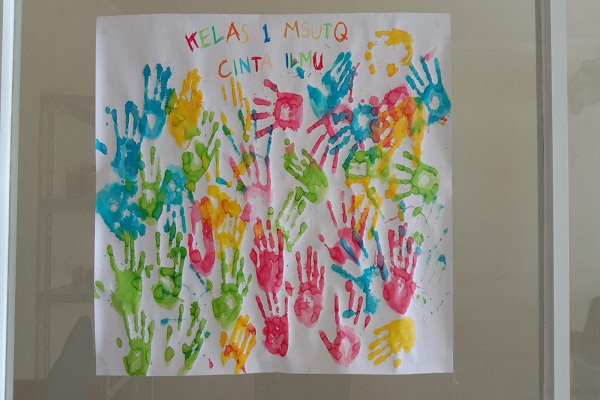 KELAS 1 MSUTQ
CINTA ILMU